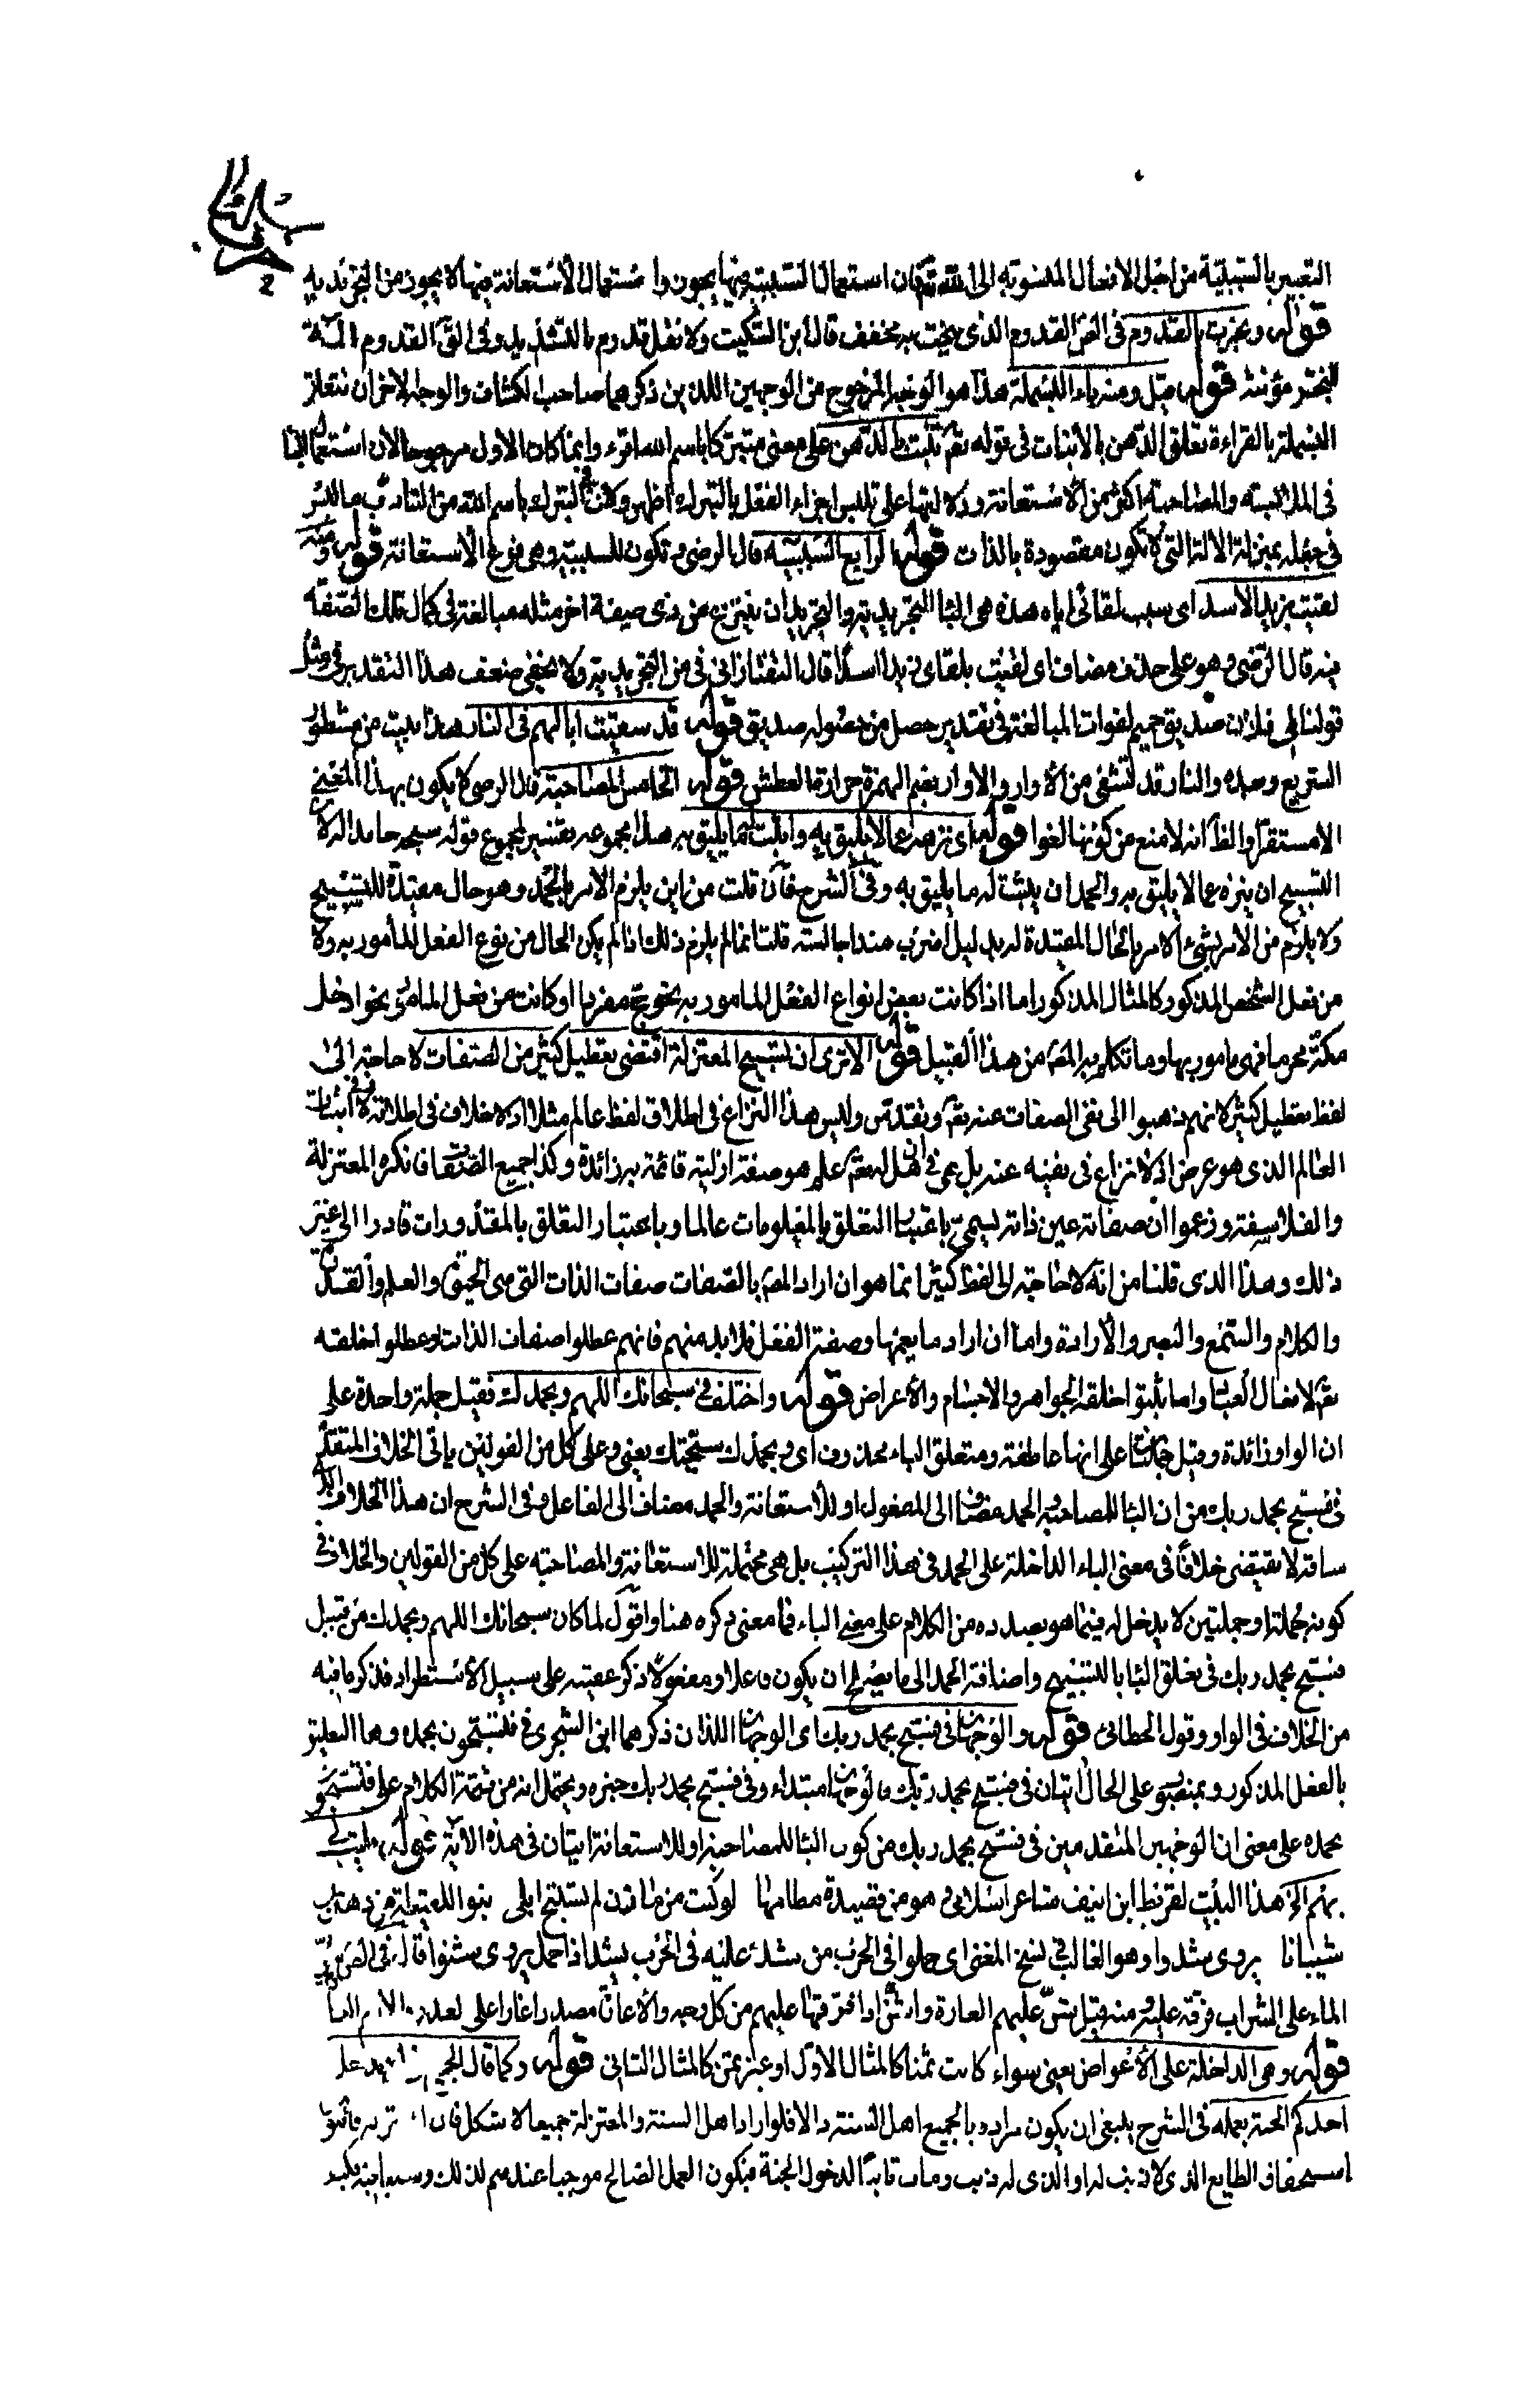 التعبير بالسببية من اجل الافعال المنسوبة الى الله تع فان استعمال السببية فيها يجوز واستعمال الاستعانة فيها لا يجوز من التجريدية
قوله ونجرت بالقدوم في الص القدوم الذي ينحت به مخفف قال ابن السكيت ولا نقل قدوم بالتشديد وفي القا القدوم آلة
للنجر مؤنثة قوله قيل ومنه باء البسملة هذا هو الوجه المرجوح من الوجهين اللذين ذكرهما صاحب الكشاف والوجه الاخر ان تتعلق
البسملة بالقراءة تعلق الدهن بالانبات في قوله تع تنبت بالدهن على معنى متبركا باسم الله اقرء وانما كان الاول مرجوحا لان استعمال البا
في الملابسة والمصاحبة اكثر من الاستعانة ودلالتها على تلبس اجزاء الفعل بالتبرك اظهر ولان في التبرك باسم الله من التادب ما ليس
في جعله بمنزلة الالة التي لا تكون مقصودة بالذات قوله الرابع السببية قال الرضي وتكون للسببية وهي فرع الاستعانة قوله ومنه
لقيت بزيد الاسد اي بسبب لقائي اياه هذه هي البا التجريدية والتجريد ان ينتزع من ذي صفة اخر مثله مبالغة في كمال تلك الصفة
فيه قال الرضي وهو على حذف مضاف اي لقيت بلقاي زيد اسدا قال التفتازاني في من التجريدية ولا يخفى ضعف هذا التقدير في مثل
قولنا لي من فلان صديق حميم لفوات المبالغة في تقدير حصل من حصوله صديق قوله قد سقيت ابالهم في النار هذا بيت من مشطور
السريع وبعده والنار قد تشفي من الاوار والاوار بضم الهمزة حرارة العطش قوله الخامس المصاحبة قال الرضي لا يكون بهذا المعنى
الا مستقرا والظ انه لا منع من كونها لغوا قوله اي نزهه عما لا يليق به واثبت له ما يليق به هذا مجموعه تفسير لمجموع قوله سبحه حامدا له لان
التسبيح ان ينزه عما لا يليق به والحمد ان يثبت له ما يليق به وفي الشرح فان قلت من اين يلزم الامر بالحمد وهو حال مقيدة للتسبيح
ولا يلزم من الامر بشيء الامر بالحال المقيدة له بدليل اضرب هندا جالسة قلت انما لم يلزم ذلك اذا لم يكن الحال من نوع الفعل المأمور به ولا
من فعل الشخص المذكور كالمثال المذكور اما اذا كانت بعض انواع الفعل المامور به نحو حج مفردا او كانت من فعل المامور نحو ادخل
مكة محرما فهي مامور بها وما تكلم به المص من هذا القبيل قوله الا ترى ان تسبيح المعتزلة اقتضى تعطيل كثير من الصفات لا حاجة الى
لفظ تعطيل كثير لانهم ذهبوا الى نفي الصفات عنه تع وتقدس وليس هذا النزاع في اطلاق لفظ عالم مثلا اذ لا خلاف في اطلاقه ولا في اثبات
العالم الذي هو عرض اذ لا نزاع في نفيه عنه بل هي في انه هل له تع علم هو صفة ازلية قائمة به زائدة وكذا جميع الصفات فانكره المعتزلة
والفلاسفة وزعموا ان صفاته عين ذاته يسمى باعتبار التعلق بالمعلومات عالما وباعتبار التعلق بالمقدورات قادرا الى غير
ذلك وهذا الذي قلنا من انه لا حاجة الى لفظ كثير انما هو ان اراد المص بالصفات صفات الذات التي هي الحيوة والعلم والقدرة
والكلام والسمع والبصر والارادة واما ان اراد ما يعمها وصفة الفعل فلا بد منهم فانهم عطلوا صفات الذات وعطلوا خلقه
تع لافعال العباد واما بقيتوا خلقه الجواهر والاجسام والاعراض قوله واختلف في سبحانك اللهم وبحمدك فقيل جملة واحدة على
ان الواو زائدة وقيل جملتان على انها عاطفة ومتعلق الباء محذوف اي وبحمدك سبحتك يعني وعلى كل من القولين ياتي الخلاف المتقدم
في فسبح بحمد ربك من ان البا للمصاحبة والحمد مضاف الى المفعول او للاستعانة والحمد مضاف الى الفاعل وفي الشرح ان هذا الخلاف الذي
ساقه لا يقتضي خلافا في معنى الباء الداخلة على الحمد في هذا التركيب بل هي محتملة للاستعانة والمصاحبة على كل من القولين والخلاف في
كونه جملة او جملتين لا يدخل له فيما هو بصدده من الكلام على معنى الباء فما معنى ذكره هنا واقول لما كان سبحانك اللهم وبحمدك من قبيل
فسبح بحمد ربك في تعلق البا بالتسبيح واضافة الحمد الى ما يصلح ان يكون فاعلا ومفعولا ذكر عقيبه على سبيل الاستطراد فذكر ما فيه
من الخلاف في الواو وقول الخطابي قوله والوجهان في فسبح بحمد ربك اي الوجهان اللذان ذكرهما ابن الشجري في فتستجيبون بحمده وهما التعليق
بالفعل المذكور وبمنصوب على الحال اتيان في فسبح بحمد ربك فالوجهان مبتداء وفي فسبح بحمد ربك خبره ويحتمل انه من تتمة الكلام على فتستجيبو
بحمده على معنى ان الوجهين المتقدمين في فسبح بحمد ربك من كون البا للمصاحبة او للاستعانة اتيان في هذه الاية قوله فليت لي
بهم الخ هذا البيت لقريط ابن انيف شاعر اسلامي وهو من قصيدة مطلعها لو كنت من مازن لم تستبح ابلي بنو اللقيطة من ذهل بن
شيبانا يروى شدوا وهو الغالب في نسخ المغني اي حملوا في الحرب من شد عليه في الحرب يشد اذا حمل ويروى شنوا قال في الص شن
الماء على الشراب فرقه عليه ومنه قيل شن عليهم الغارة واشن اذا فرقها عليهم من كل وجه والاغارة مصدر اغار على العدو
قوله وهي الداخلة على الاعواض يعني سواء كانت ثمنا كالمثال الاول او غير ثمن كالمثال الثاني قوله وكما قال الجميع
احدكم الجنة بعمله في الشرح ينبغي ان يكون مراده بالجميع اهل السنة والا فلو اراد اهل السنة والمعتزلة جميعا لاشكل فان
استحقاق الطايع الذي لا ذنب له او الذي له ذنب ومات تائبا لدخول الجنة فيكون العمل الصالح موجبا عندهم لذلك وسببا فيه